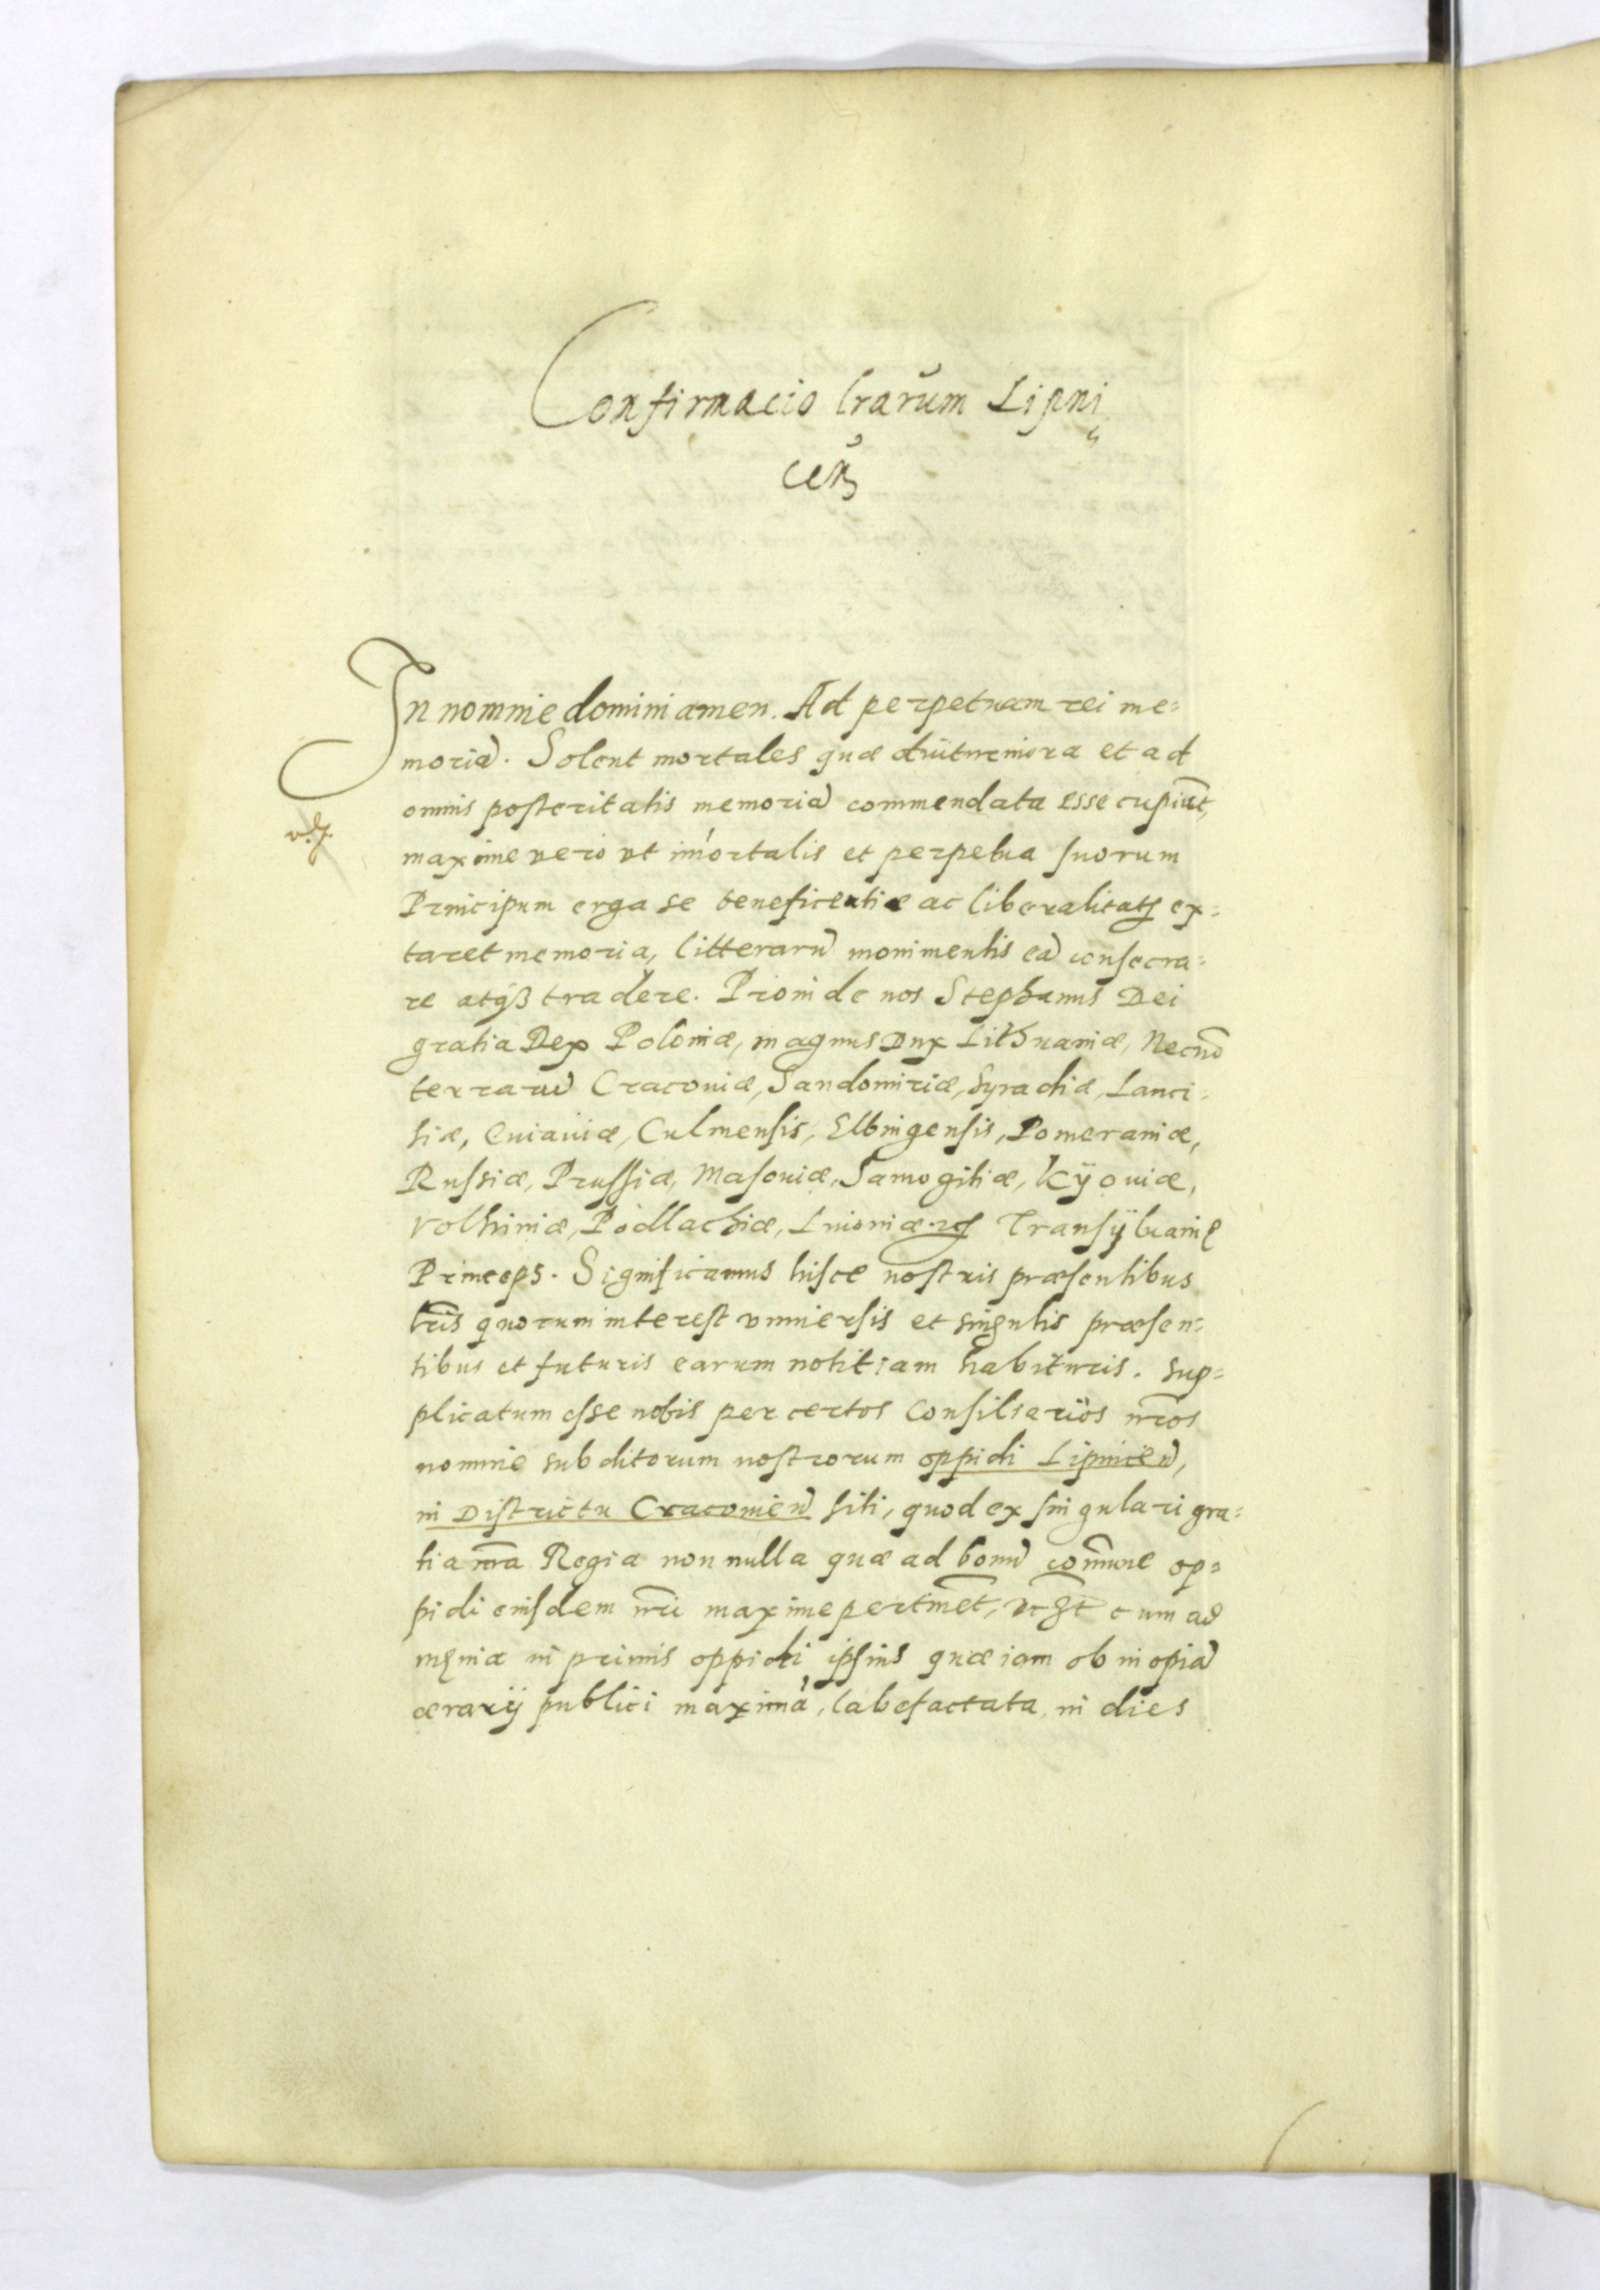 Confirmacio lrarum Lipni
cen
In nomine domini amen. Ad perpetuam rei me-
moria. Solent mortales quæ diuturniora et ad
omnis posteritatis memoria commendata esse cupiūt,
maxime vero vt im̄ortalis et perpetua suorum
Principum erga se beneficentiæ ac liberalitatis ex-
taret memoria, litteraru monimentis ea consecra-
re atqȝ tradere. Proinde nos Stephanus Dei
gratia Rex Poloniæ, magnus Dux Lithuaniæ, Necnō
terraru Cracouiæ, Sandomiriæ, Syradiæ, Lanci-
tiæ, Cuiauiæ, Culmensis, Elbingensis, Pomeraniæ,
Russiæ, Prussiæ, Masouiæ, Samogitiæ, Kÿouiæ,
Volhiniæ, Podlachiæ, Liuoniæ Transÿluanię
Princeps. Significamus hisce nostris præsentibus
lr̄is quorum interest vniuersis et singulis præsen-
tibus et futuris earum notitiam habituris. Sup-
plicatum esse nobis per certos Consiliarios nr̄os
nomine subditorum nostrorum oppidi Lipnicen,
in Districtu Cracouien siti, quod ex singulari gra-
tia nr̄a Regia non nulla quæ ad bonu com̄une op-
pidi eiusdem nr̄i maxime pertinēt, cum ad
męnia in primis oppidi ipsius quæ iam ob inopia
ærarÿ publici maxima, labefactata in dies